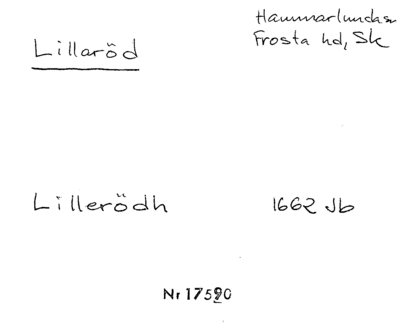 Lillaröd
Hammarlunda sn
Frosta hd, Sk
Lillerödh
1662 Jb
Nr 17590